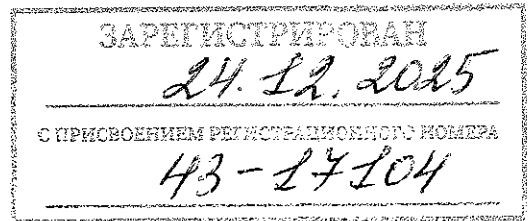 ЗАРЕГИСТРИРОВАН
24.12.2025
С ПРИСВОЕНИЕМ РЕГИСТРАЦИОННОГО НОМЕРА
43-17104